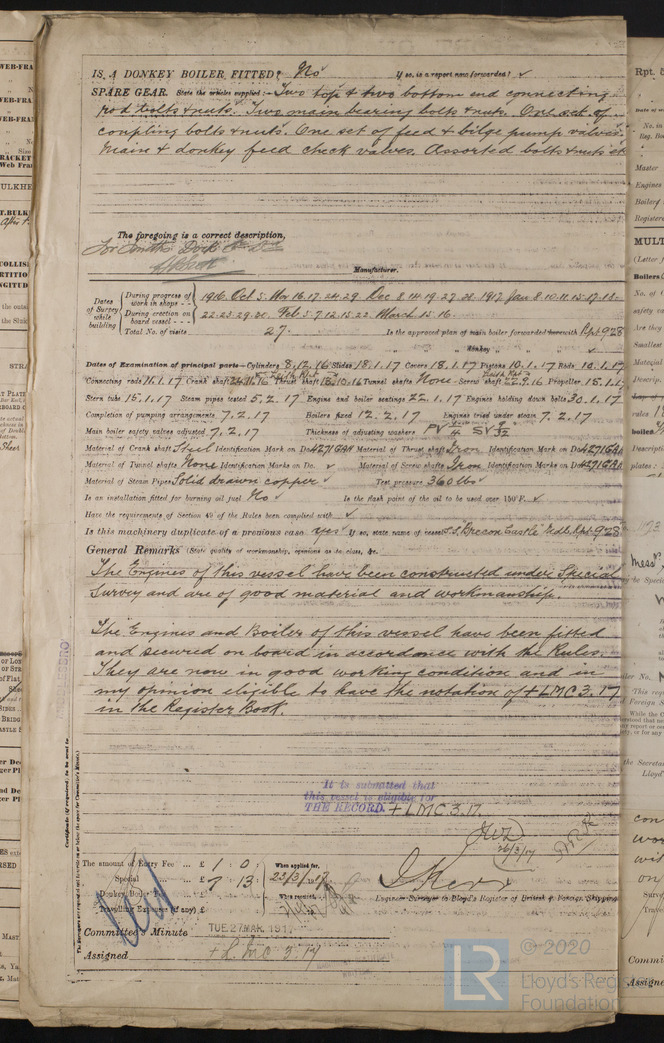 IS A DONKEY BOILER FITTED? No If so, is a report now forwarded? ✓
SPARE GEAR. State the articles supplied:- Two top & two bottom end connecting
rod bolts & nuts. Two main bearing bolts & nuts. One set of
coupling bolts & nuts. One set of feed & bilge pump valves.
Main & donkey feed check valves. Assorted bolts & nuts
The foregoing is a correct description,
For Smiths Dock Co Ld
Manufacturer.
Dates of Survey while building
During progress of work in shops - - 1916. Oct 5. Nov 16. 17. 24. 29. Dec 8. 14. 19. 27. 28. 1917. Jan 8. 10. 11. 15. 17. 18.
During erection on board vessel - - - 22. 23. 29. 30. Feb 5. 7. 12. 15. 22. March 15. 16.
Total No. of visits 27. Is the approved plan of main boiler forwarded herewith Rpt 928
" " " donkey " " " ✓
Dates of Examination of principal parts—Cylinders 8.12.16 Slides 18.1.17 Covers 18.1.17 Pistons 10.1.17 Rods 10.1.17
Connecting rods 11.1.17 Crank shaft 24.11.16 Thrust shaft 18.10.16 Tunnel shafts None Screw shaft 22.9.16 Propeller 15.1.17
Stern tube 15.1.17 Steam pipes tested 5.2.17 Engine and boiler seatings 22.1.17 Engines holding down bolts 30.1.17
Completion of pumping arrangements 7.2.17 Boilers fixed 12.2.17 Engines tried under steam 7.2.17
Main boiler safety valves adjusted 7.2.17 Thickness of adjusting washers
Material of Crank shaft Steel Identification Mark on Do. 4271GAN Material of Thrust shaft Iron Identification Mark on Do. 4271GAN
Material of Tunnel shafts None Identification Marks on Do. ✓ Material of Screw shafts Iron Identification Marks on Do. 4271GAN
Material of Steam Pipes Solid drawn copper ✓ Test pressure 360 lbs ✓
Is an installation fitted for burning oil fuel No ✓ Is the flash point of the oil to be used over 150°F. ✓
Have the requirements of Section 49 of the Rules been complied with ✓
Is this machinery duplicate of a previous case yes If so, state name of vessel S.S. "Brecon Castle" Mdb. Rpt 928
General Remarks (State quality of workmanship, opinions as to class, &c.
The Engines of this vessel have been constructed under Special
Survey and are of good material and workmanship.
The Engines and Boiler of this vessel have been fitted
and secured on board in accordance with the Rules.
They are now in good working condition and in
my opinion eligible to have the notation of + LMC 3.17
in the Register Book.
It is submitted that
this vessel is eligible for
THE RECORD. + LMC 3.17.
JWD
26/3/17
The amount of Entry Fee ... £ 1 : 0 : When applied for,
Special ... £ 7 : 13 : 23/3/1917
Donkey Boiler Fee ... £ When received,
Travelling Expenses (if any) £
Engineer Surveyor to Lloyd's Register of British & Foreign Shipping
Committee's Minute TUE. 27 MAR. 1917
Assigned + L.M.C. 3.17
LR © 2020
Lloyd's Register
Foundation